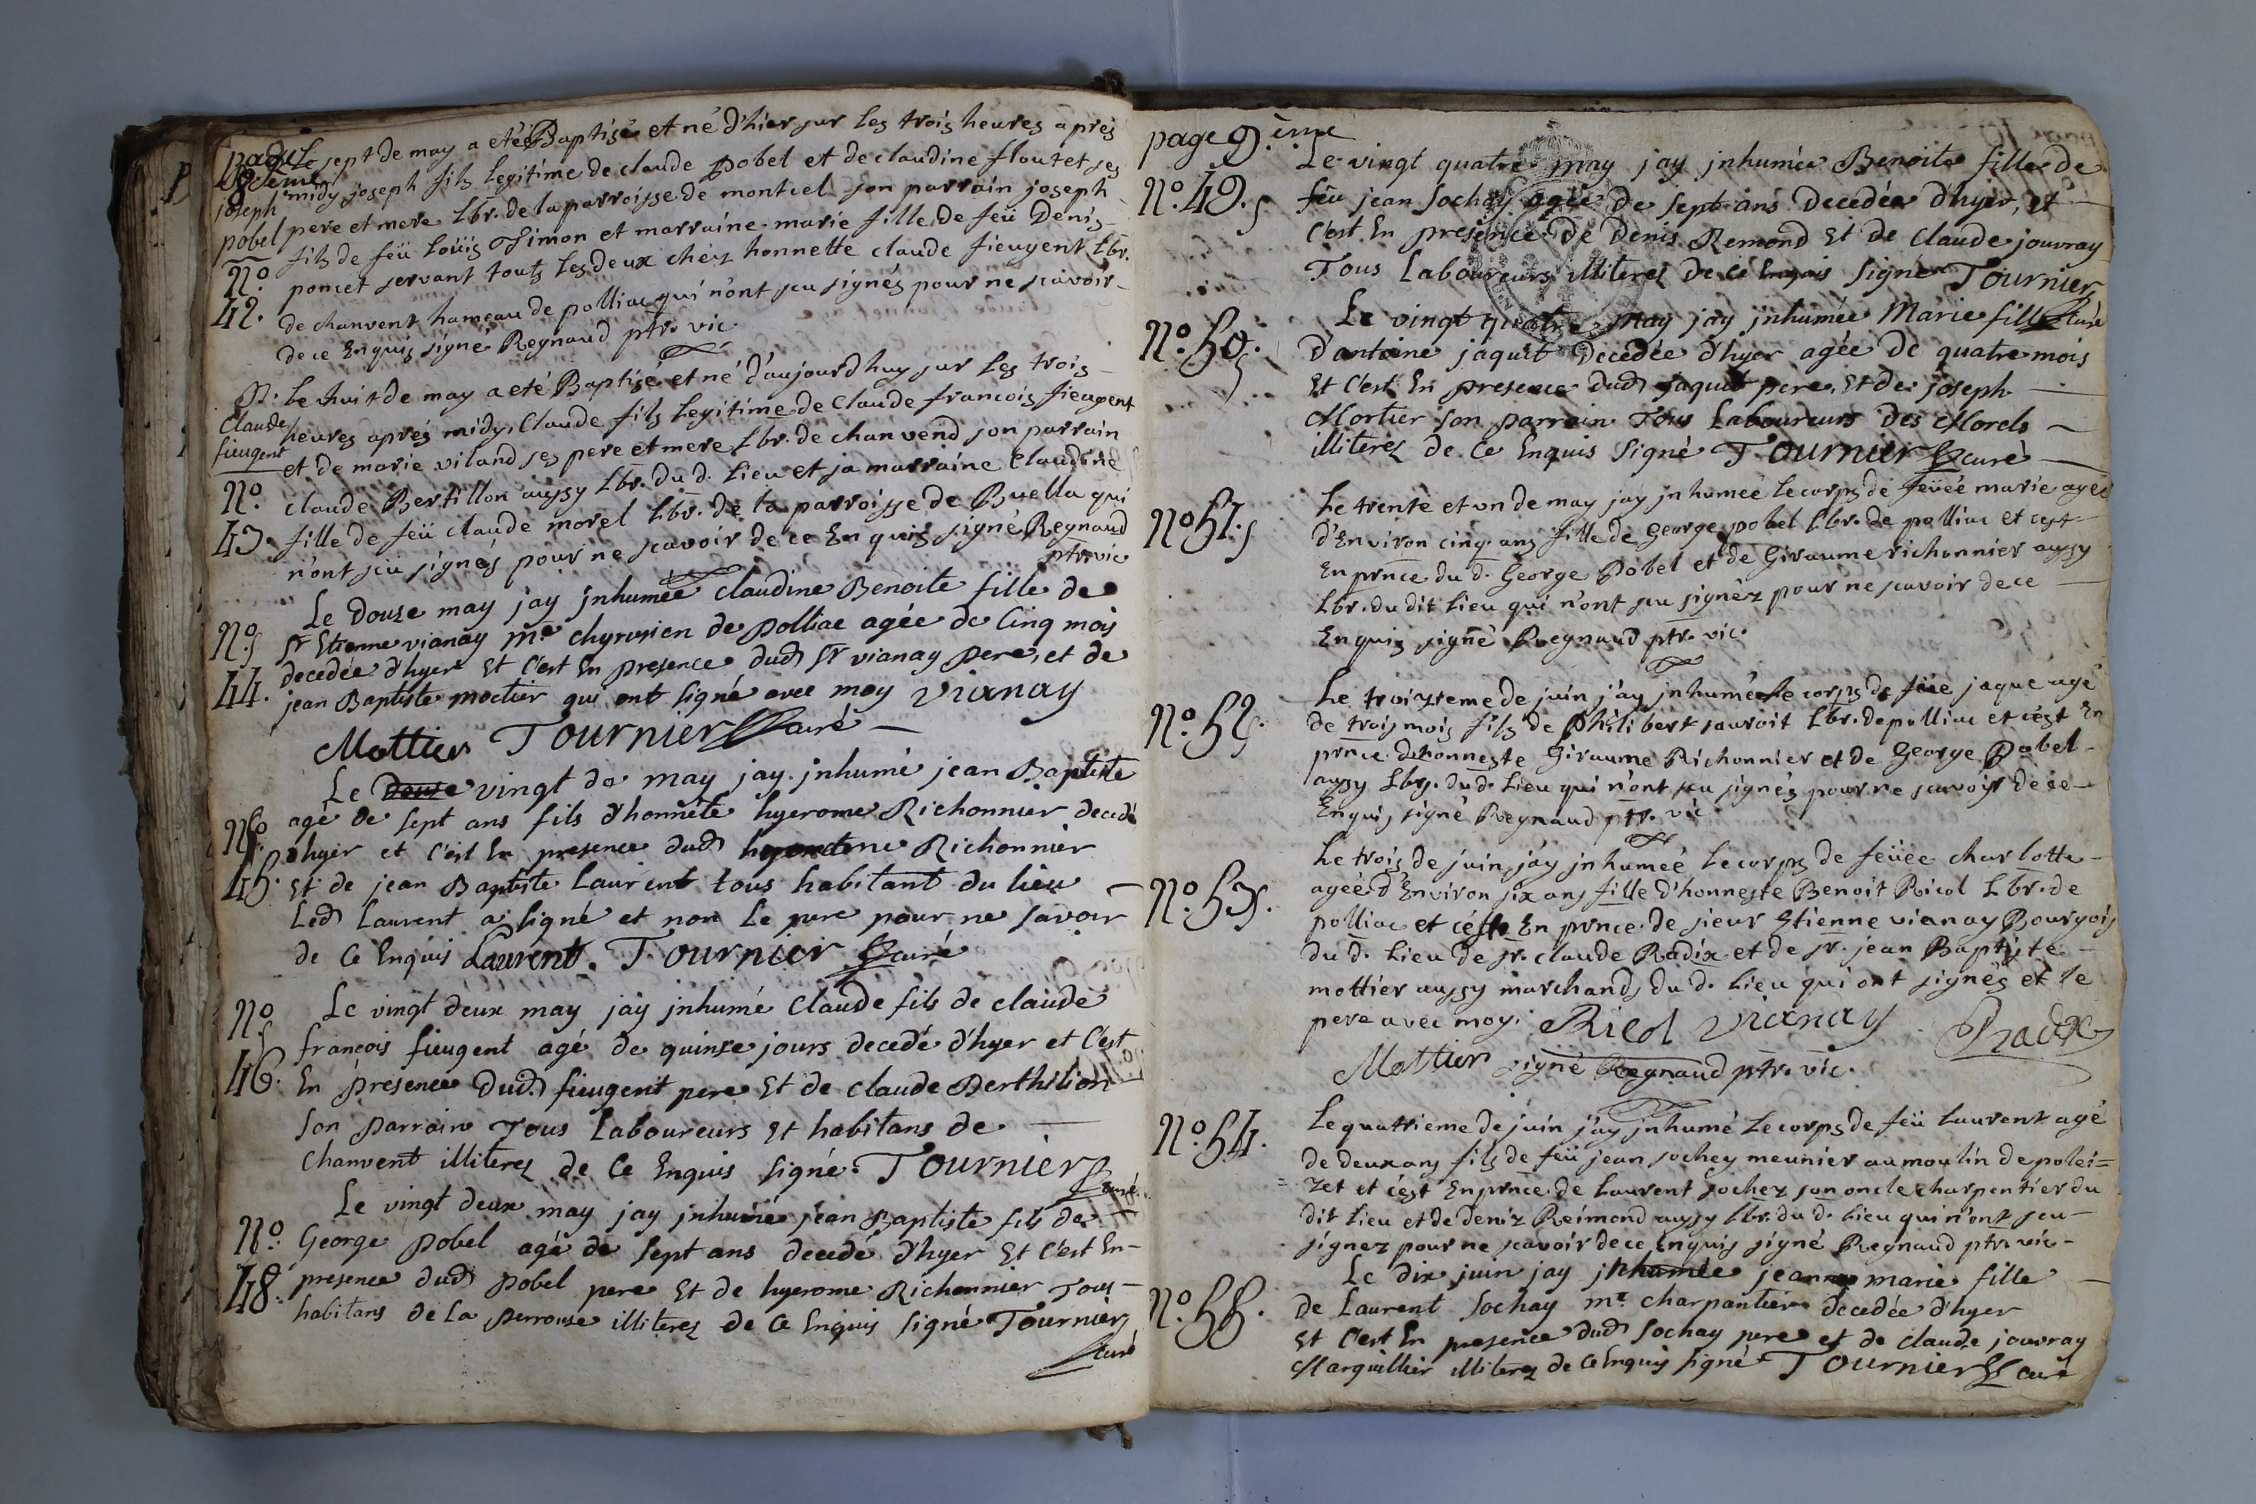 page
8.eme
Le sept de may a eté Baptisé et né d'hier sur les trois heures aprés
midy, joseph fils legitime de claude pobel et de claudine floutet ses
joseph
pobel
pere et mere Lbr. de la parroisse de montcel son parrain joseph
fils de feü Loüis Simon et marraine marie fille de feü Denis
No.
42.
poncet servant touts les deux chéz honnette claude fieugent Lbr.
de chanvent hameau de polliac qui n'ont sçu signés pour ne scavoir
de ce Enquis signé Regnaud ptr. vic.
Le huit de may a eté Baptisé et né d'aujourdhuy sur les trois
Claude
fieugent
heures aprés midy, Claude fils legitime de Claude francois fieugent
et de marie viland ses pere et mere Lbr. de chanvend son parrain
No.
43.
claude Bertillon aussy Lbr. du d. Lieu et sa marraine Claudine
fille de feü claude morel Lbr. de la parroisse de Buella qui
n'ont sçu signés pour ne scavoir de ce Enquis signé Regnaud
ptr. vic
Le Douze may jay jnhumée claudine Benoite fille de
No.
44.
Sr Etienne vianay me chyrurien de polliac agée de Cinq mois
decedée d'hyer Et C'est En presence dud Sr vianay pere, et de
jean Baptiste moctier qui ont signé avec moy vianay
Mottier Tournier Curé
Le douze vingt de may jay jnhumé jean Baptiste
agé de sept ans fils d'honnéte hyerome Richonnier decedé
No.
45.
d'hyer et C'est En presence dud hyerome Richonnier
Et de jean Baptiste Laurent tous habitant du lieu
Led Laurent a signé et non Le pere pour ne savoir
de Ce Enquis Laurent. Tournier curé
No
46.
Le vingt deux may jay jnhumé Claude fils de claude
francois fieugent agé de quinze jours decedé d'hyer et C'est
En presence Dud fieugent pere Et de claude Berthilion
son parrain Tous Laboureurs Et habitans de
Chanvent illiterez de Ce Enquis signé Tournier
Curé
Le vingt deux may jay jnhumé jean Baptiste fils de
No.
48.
George pobel agé de sept ans decedé d'hyer Et C'est En
presence dud pobel pere Et de hyerome Richonnier Tous
habitans de La perrouse illiterez de Ce Enquis signé Tournier
curé
page 9.eme
Le vingt quatre may jay jnhumée Benoite fille de
No. 49.
feü jean Sochay agée De sept ans Decedée d'hyer, et
C'est En presence De Denis Remond Et de Claude jouvray
Tous Laboureurs illiterez de Ce Enquis signé Tournier
Curé
Le vingt quatre may jay jnhumée Marie fille
No. 50.
D'antoine jaquet Decedée d'hyer agée De quatre mois
Et C'est En presence dud jaquet pere, Et de joseph
Mortier son parrain Tous Laboureurs Des Morels
illiterez de Ce Enquis signé Tournier curé
No 51.
Le trente et un de may jay jnhumeé le corps de feüeé marie ageé
d'Environ cinq ans fille de George pobel Lbr. de polliac et cest
En prnce du d. George Pobel et de Giraume richonnier aussy
Lbr. du dit Lieu qui n'ont sçu signéz pour ne scavoir de ce
Enquis signé Regnaud ptr. vic.
No. 52.
Le troizieme de juin j'ay jnhumé le corps de füe jaque agé
de trois mois fils de Philibert jauroit Lbr. de polliac et cést En
prnce dhonneste Giraume Richonnier et de George Pobel
aussy Lbr. du d. Lieu qui n'ont sçu signés pour ne scavoir de ce
Enquis signé Regnaud ptr. vic
No. 53.
Le trois de juin, j'ay jnhumeé le corps de feüee charlotte
agée d'Environ six ans fille d'honneste Benoit Ricol Lbr. de
polliac et cést En prnce de sieur Etienne vianay Bourgois
du d. Lieu de sr. claude Radix et de sr. jean Baptiste
mottier aussy marchands du d. Lieu qui ont signés et le
pere avec moy. Ricol vianay Radix
Mottier signé Regnaud ptr. vic.
No. 54.
Le quatrieme de juin j'ay jnhumé le corps de feü laurent agé
de deux ans fils de feü jean sochey meunier au moulin de polei=
= zet et cést En prnce de Laurent Sochez son oncle charpentier du
dit Lieu et de deniz Reimond aussy Lbr. du d. Lieu qui n'ont sçu
signez pour ne scavoir de ce Enquis signé Regnaud ptr. vic.
Le dix juin jay jnhumée jeanne marie fille
No. 55.
de Laurent Sochay me charpantier decedée d'hyer
Et C'est En presence dud sochay pere et de claude jouvray
Marguillier illiterez de Ce Enquis signé Tournier Curé